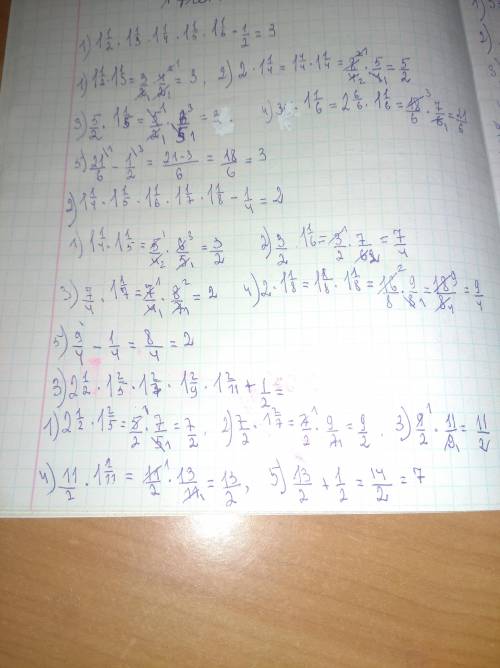 1) 1 1/2 · 1 1/3 · 1 1/4 · 1 1/5 · 1 1/6 - 1/2 = 3
1) 1 1/2 · 1 1/3 = 3/2 · 4/3 = 3, 2) 2 · 1 1/4 = 1 4/4 · 1 1/4 = 8/4 · 5/4 = 5/2
3) 5/2 · 1 1/5 = 5/2 · 6/5 = 4) 3 · 1 1/6 = 2 6/6 · 1 1/6 = 18/6 · 7/6 = 21/6
5) 21/6 - 1/2 = 21-3/6 = 18/6 = 3
2) 1 1/4 · 1 1/5 · 1 1/6 · 1 1/7 · 1 1/8 - 1/4 = 2
1) 1 1/4 · 1 1/5 = 5/4 · 6/5 = 3/2 2) 3/2 · 1 1/6 = 3/2 · 7/6 = 7/4
3) 7/4 · 1 1/7 = 7/4 · 8/7 = 2 4) 2 · 1 1/8 = 1 8/8 · 1 1/8 = 16/8 · 9/8 = 18/8 = 9/4
5) 9/4 - 1/4 = 8/4 = 2
3) 2 1/2 · 1 2/5 · 1 2/7 · 1 2/9 · 1 2/11 + 1/2 =
1) 2 1/2 · 1 2/5 = 5/2 · 7/5 = 7/2, 2) 7/2 · 1 2/7 = 7/2 · 9/7 = 9/2, 3) 9/2 · 11/9 = 11/2
4) 11/2 · 1 2/11 = 11/2 · 13/11 = 13/2, 5) 13/2 + 1/2 = 14/2 = 7